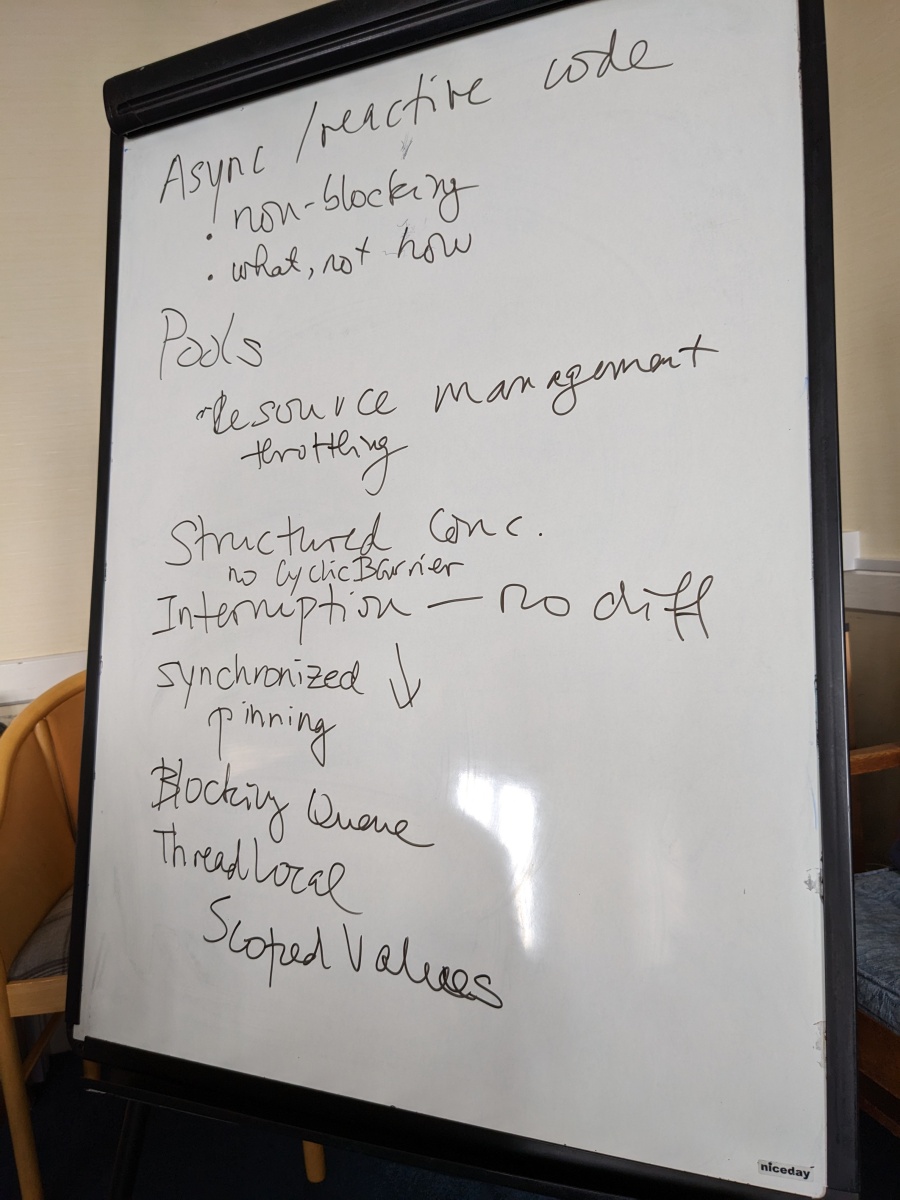 Async / reactive code
• non-blocking
• what, not how
Pools
- Resource management
throttling
Structured Conc.
no CyclicBarrier
Interruption — no diff
synchronized ↓
pinning
Blocking Queue
ThreadLocal
Scoped Values
niceday